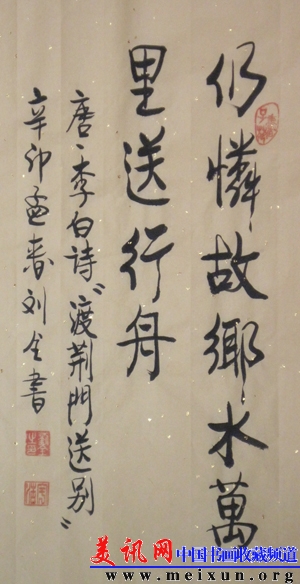 仍憐故鄉水萬
里送行舟
唐、李白诗“渡荆門送别”
辛卯孟春刘全書
美讯网 中国书画收藏频道
www.meixun.org